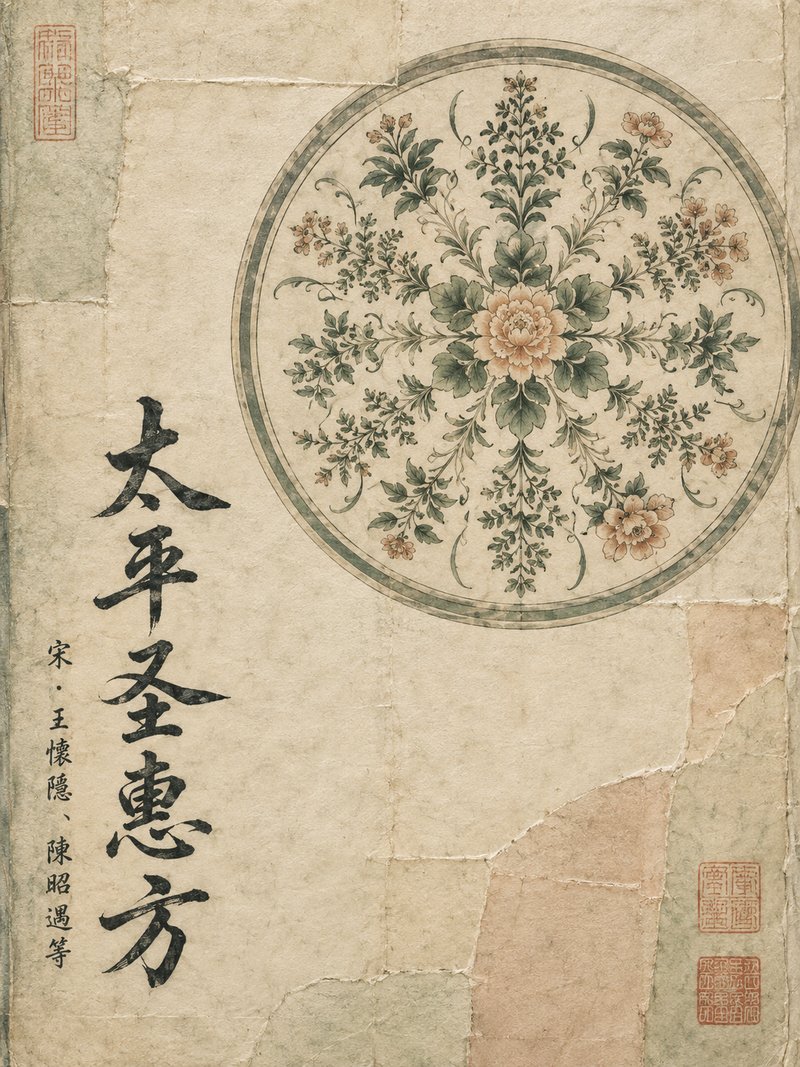 太平圣惠方
宋·王懷隱、陳昭遇等